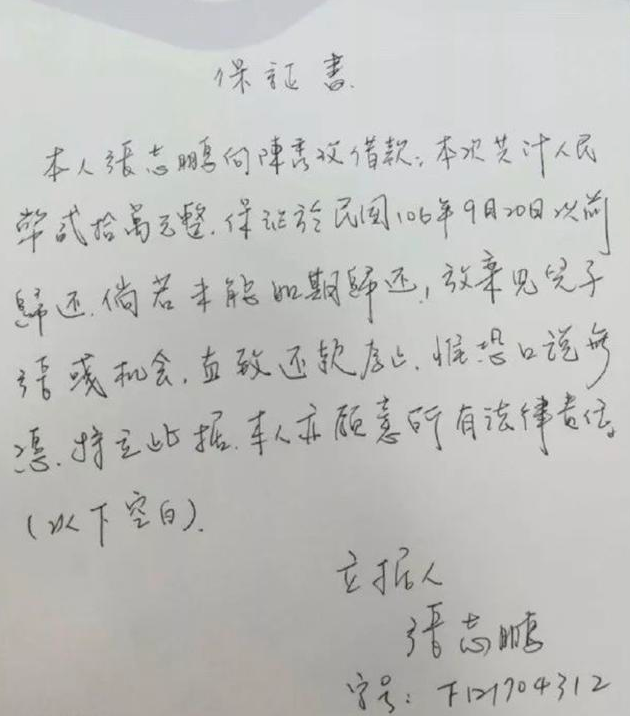 保证書.
本人張志鵬向陳秀玫借款,本次共计人民
幣貳拾萬元整.保证於民国106年9月20日以前
歸还.倘若未能如期歸还,放棄见兒子
張彧机会,直致还款为止.惟恐口说無
憑.特立此据.本人亦願意所有法律责任。
(以下空白).
立据人
張志鵬
字号: F121704312